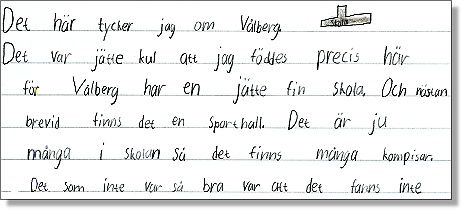 Det här tycker jag om Vålberg.
skola
Det var jätte kul att jag föddes precis här
för Vålberg har en jätte fin skola. Och nästan
brevid finns det en sporthall. Det är ju
många i skolan så det finns många kompisar.
Det som inte var så bra var att det fanns inte